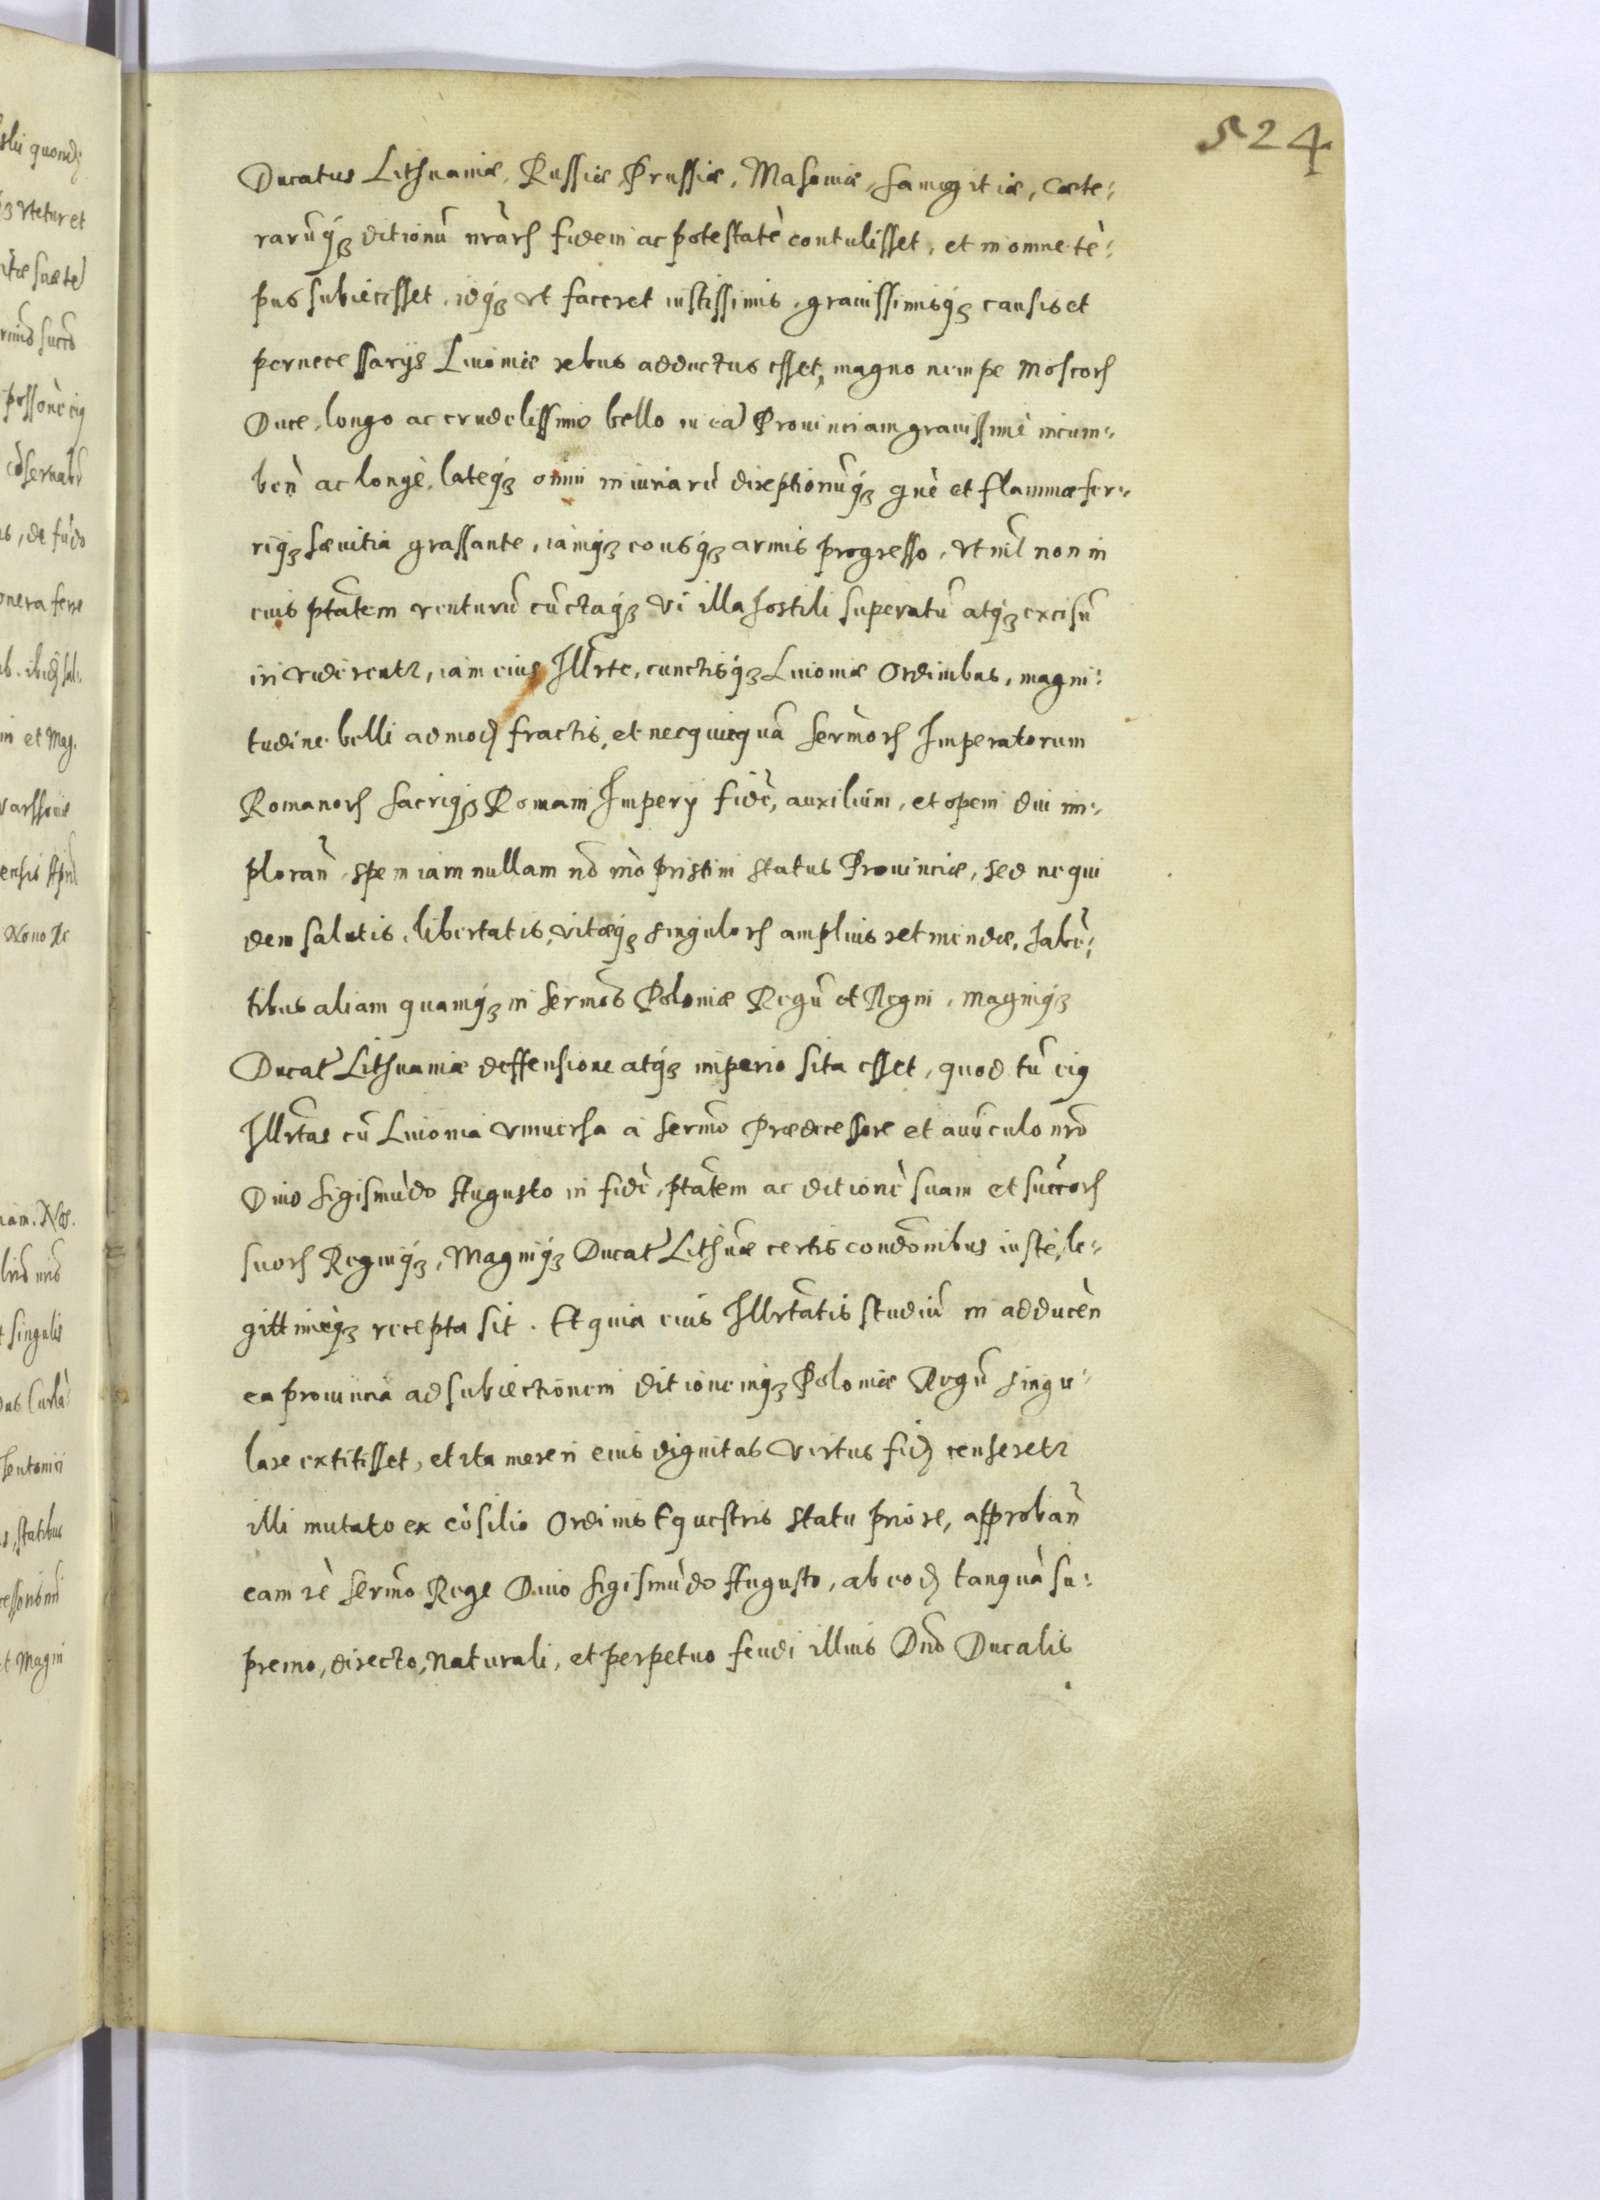 524
Ducatus Lithuaniæ, Russiæ, Prussiæ, Masoviæ, Samogitiæ, Cæte-
rarūq́ʒ ditionū nr̄arꝝ fidem ac potestatē contulisset, et in omne tē-
pus subiecisset, idq́ʒ vt faceret iustissimis, grauissimisq́ʒ causis et
pernecessarijs Liuoniæ rebus adductus esset, magno nempe Moscorꝝ
Duce, longo ac crudelissimo bello in eā Prouinciam grauissimè incum-
ben̄ ac longè, lateq́ʒ omni iniuriarū direptionūq́ʒ gn̄e et flammæ fer-
riq́ʒ sæuitia grassante, iamq́ʒ eousq́ʒ armis progresso, vt nil non in
eius ptātem venturū cūctaq́ʒ vi illa hostili superatū atq́ʒ excisū
iri viderentr, iam eius Illrte, cunctisq́ʒ Liuoniæ Ordinibus, magni-
tudine belli admoꝺ fractis, et necquicquā Sermorꝝ Imperatorum
Romanorꝝ Sacriq́ʒ Romani Imperij fidē, auxilium, et opem diu im-
ploran̄, spem iam nullam nō mō pristini status Prouinciæ, sed ne qui
dem salutis, libertatis, vitæq́ʒ singulorꝝ amplius retinendæ, habē-
tibus aliam quamq́ʒ in Sermōr Poloniæ Regū et Regni, Magniq́ʒ
Ducat' Lithuaniæ deffensione atq́ʒ imperio sita esset, quod tū eiꝰ
Illrtas cū Liuonia vniuersa à Sermō Prædecessore et auūculo nrō
Diuo Sigismūdo Augusto in fidē, ptātem ac ditionē suam et succorꝝ
suorꝝ Regniq́ʒ, Magniq́ʒ Ducat' Lithūæ certis condōnibus iustè, le-
gittimèq́ʒ recepta sit. Et quia eius Illrtātis studiū in adducēn
ea prouincia ad subiectionem ditionemq́ʒ Poloniæ Regū singu-
lare extitisset, et ita mereri eius dignitas virtus fiꝺ censeretr
illi mutato ex cōsilio Ordinis Equestris statu priore, approban̄
eam rē Sermō Rege Diuo Sigismūdo Augusto, ab eoꝺ tanquā su-
premo, directo, naturali, et perpetuo feudi illius Dnō Ducalis